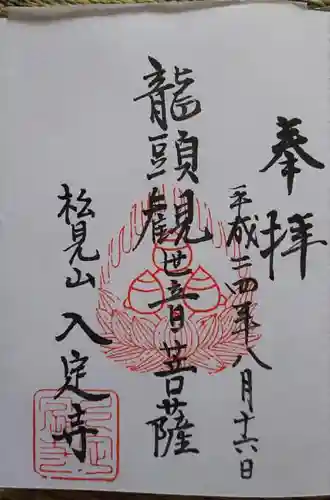 奉拝
平成二四年八月十六日
龍頭観世音菩薩
松見山 入定寺